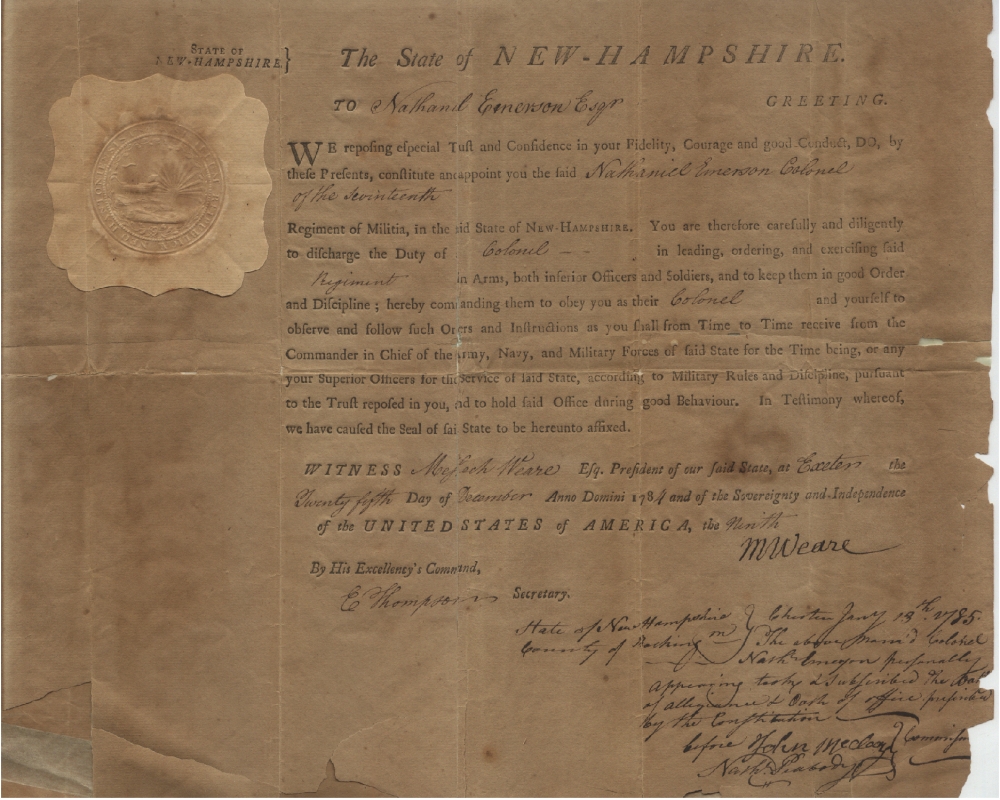 STATE OF
NEW-HAMPSHIRE.}
The State of NEW-HAMPSHIRE.
TO Nathaniel Emerson Esqr GREETING.
WE reposing especial Tust and Confidence in your Fidelity, Courage and good Conduct, DO, by
these Presents, constitute and appoint you the said Nathaniel Emerson Colonel
of the seventeenth
Regiment of Militia, in the aid State of NEW-HAMPSHIRE. You are therefore carefully and diligently
to discharge the Duty of Colonel - - in leading, ordering, and exercising said
Regiment in Arms, both inferior Officers and Soldiers, and to keep them in good Order
and Discipline ; hereby commanding them to obey you as their Colonel and yourself to
observe and follow such Orers and Instructions as you shall from Time to Time receive from the
Commander in Chief of the Army, Navy, and Military Forces of said State for the Time being, or any
your Superior Officers for the Service of said State, according to Military Rules and Discipline, pursuant
to the Trust reposed in you, and to hold said Office during good Behaviour. In Testimony whereof,
we have caused the Seal of sai State to be hereunto affixed.
WITNESS Meshech Weare Esq. President of our said State, at Exeter the
Twenty fifth Day of December Anno Domini 1784 and of the Sovereignty and Independence
of the UNITED STATES of AMERICA, the Ninth
M Weare
By His Excellency's Command,
E Thompson Secretary.
State of New Hampshire } Chester Jany 18th 1785
County of Rockingm } The above Nam'd Colonel
Nathl Emerson personally
appearing took & subscribed the
of allegiance & Oath of office
by the Constitution
before John
Nathl Peabody